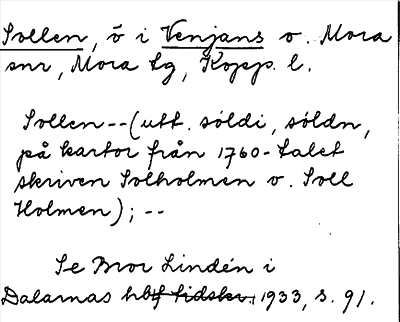 Sollen, ö i Venjans o. Mora
snr, Mora tg, Kopp. l.
Sollen -- (utt. söldi, söldn,
på kartor från 1760-talet
skriven Solholmen o. Soll
Holmen); --
Se Bror Lindén i
Dalarnas hbf tidskr. 1933, s. 91.